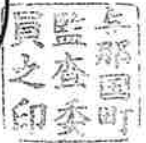 与那国町
監査委
員之印